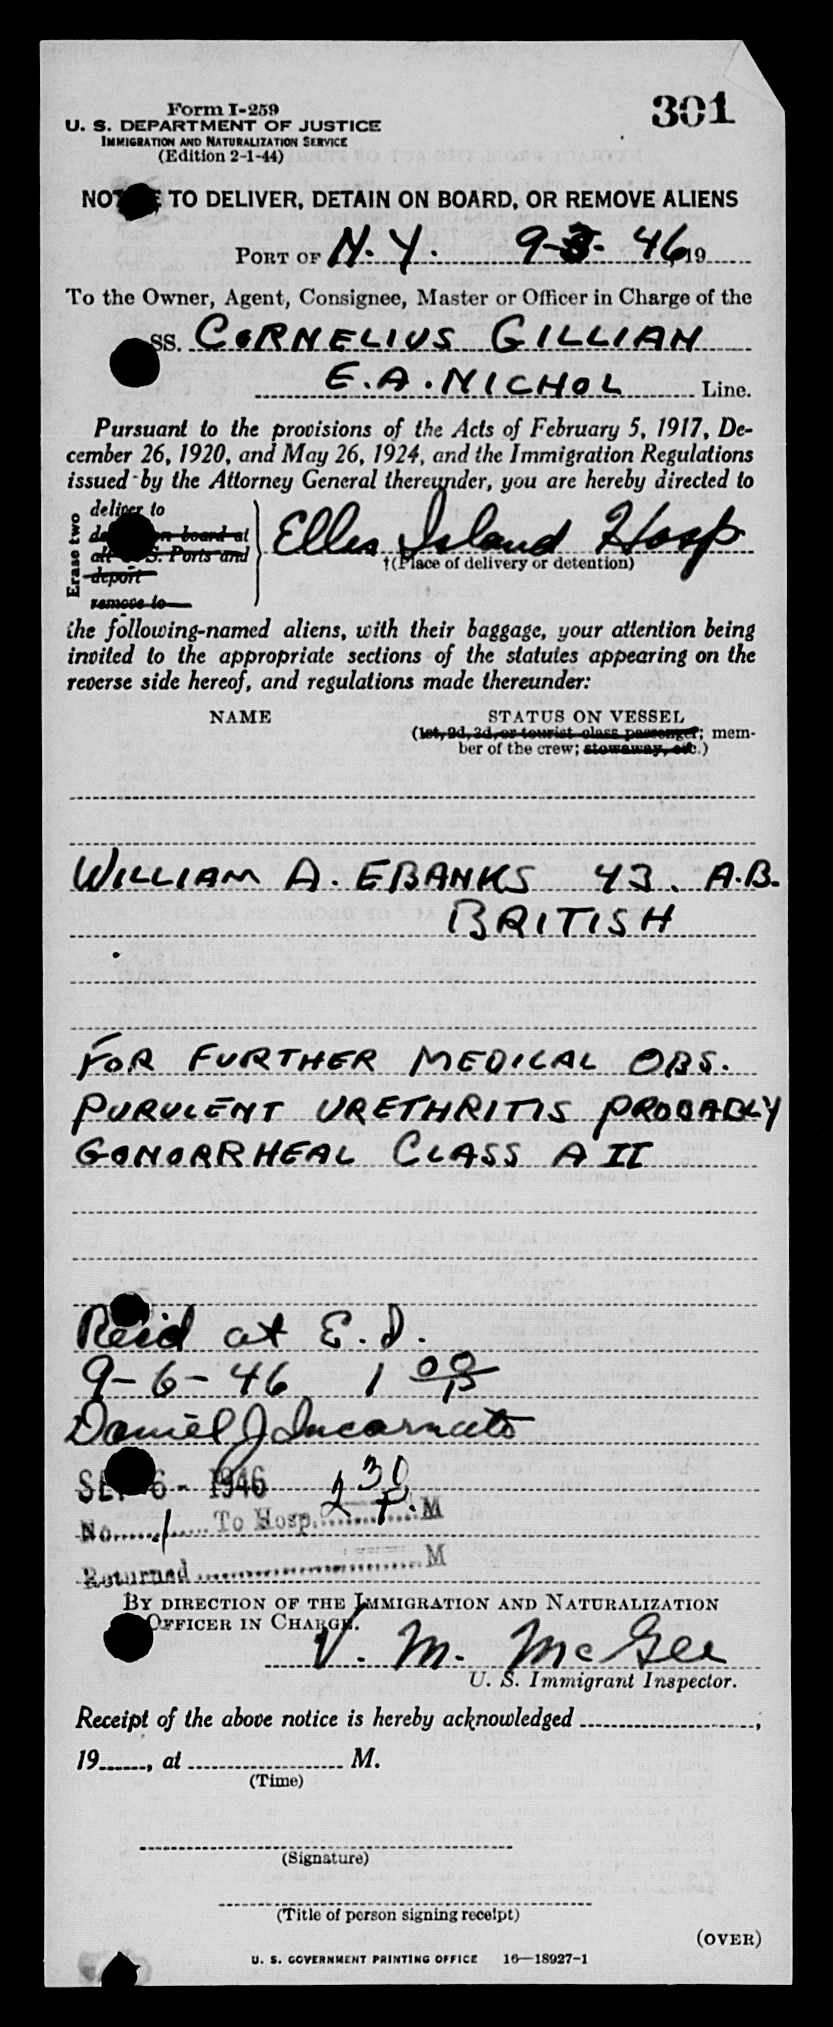 Form I-259
301
U. S. DEPARTMENT OF JUSTICE
IMMIGRATION AND NATURALIZATION SERVICE
(Edition 2-1-44)
NOT E TO DELIVER, DETAIN ON BOARD, OR REMOVE ALIENS
PORT OF N. Y. 9-3-46, 19
To the Owner, Agent, Consignee, Master or Officer in Charge of the
SS. CORNELIUS GILLIAN
E. A. NICHOL Line.
Pursuant to the provisions of the Acts of February 5, 1917, De-
cember 26, 1920, and May 26, 1924, and the Immigration Regulations
issued by the Attorney General thereunder, you are hereby directed to
Erase two
deliver to
de n board at
all U. S. Ports and
deport
remove to
Ellis Island Hosp
†(Place of delivery or detention)
the following-named aliens, with their baggage, your attention being
invited to the appropriate sections of the statutes appearing on the
reverse side hereof, and regulations made thereunder:
NAME STATUS ON VESSEL
(1st, 2d, 3d, or tourist class passenger; mem-
ber of the crew; stowaway, etc.)
WILLIAM A. EBANKS 43. A.B.
BRITISH
FOR FURTHER MEDICAL OBS.
PURULENT URETHRITIS PROBABLY
GONORRHEAL CLASS A II
Rec'd at E. I.
9-6-46 1 00 P
Daniel J Incarnato
SEP 6 - 1946 2 30
No. 1 To Hosp. P. M
Returned M
BY DIRECTION OF THE IMMIGRATION AND NATURALIZATION
OFFICER IN CHARGE.
V. M. McGee
U. S. Immigrant Inspector.
Receipt of the above notice is hereby acknowledged ,
19 , at M.
(Time)
(Signature)
(Title of person signing receipt)
(OVER)
U. S. GOVERNMENT PRINTING OFFICE 16—18927-1